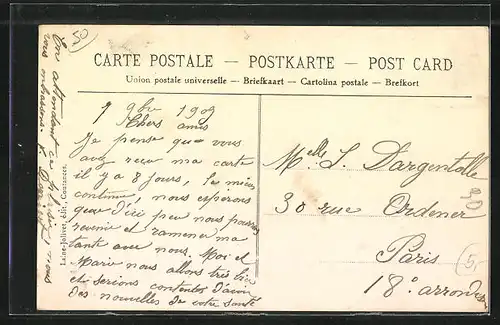 50
CARTE POSTALE — POSTKARTE — POST CARD
Union postale universelle — Briefkaart — Cartolina postale — Brefkort
9 9bre 1909
Chers amis
Je pense que vous
avez reçu ma carte
il y a 8 jours, le mieux
continue, nous esperons
que d'ici peu nous pourrons
revenir et ramener ma
tante avec nous. Moi et
Marie nous allons très bien
et serions contentes d'avoir
des nouvelles de votre santé
En attendant ce plaisir nous
vous embrassons.
Melle L. Dargentolle
30 rue Ordener
Paris
18e arrondis
5